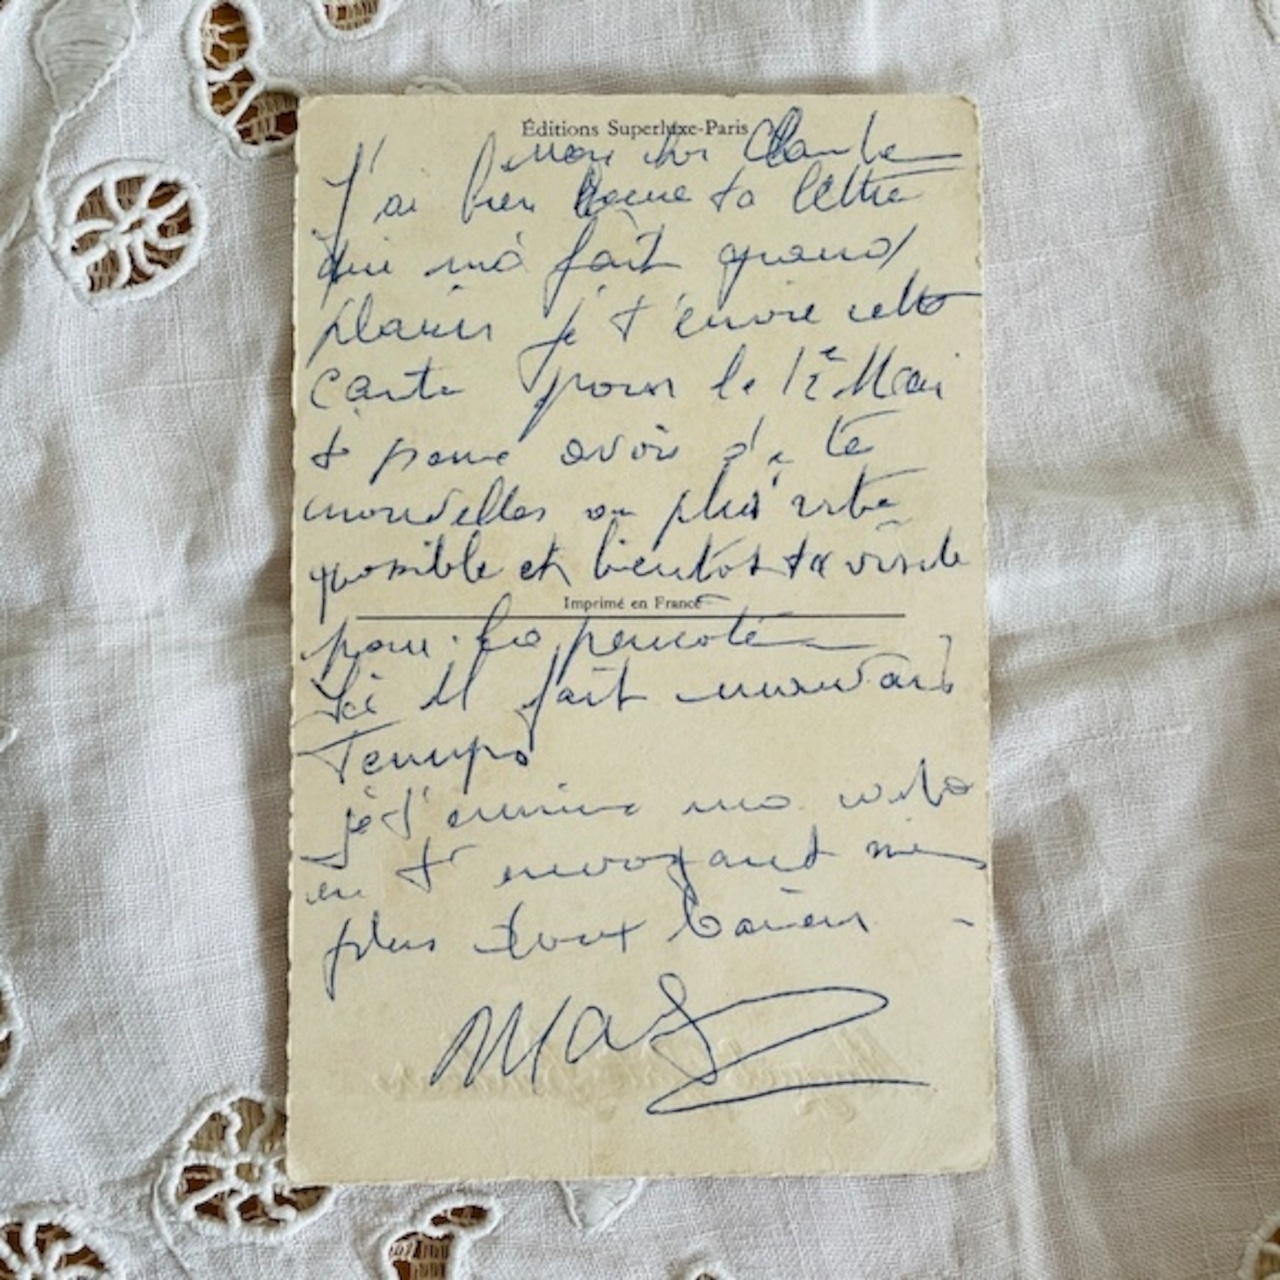 Éditions Superluxe-Paris
mon cher Claude
J'ai bien recue ta lettre
qui m'a fait grand
plaisir je t'envoie cette
carte pour le 1e Mai
+ pour avoir de te
nouvelles au plus vite
possible et bientot ta visite
Imprimé en France
pour la
ici il fait mauvais
Temps
je termine ma
en t'envoyant mes
plus doux baisers